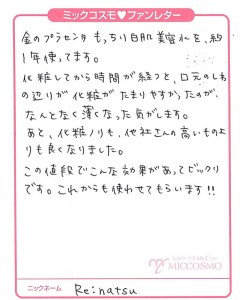 ミックコスモ♥ファンレター
金のプラセンタ もっちり白肌美容液を、約
1年使ってます。
化粧してから時間が経つと、口元のしわ
の辺りが化粧がたまりやすかったのが、
なんとなく薄くなった気がします。
あと、化粧ノリも、他社さんの高いものよ
りも良くなりました。
この値段でこんな効果があってビックリ
です。これからも使わせてもらいます!!
MICCOSMO
ニックネーム Re:natsu